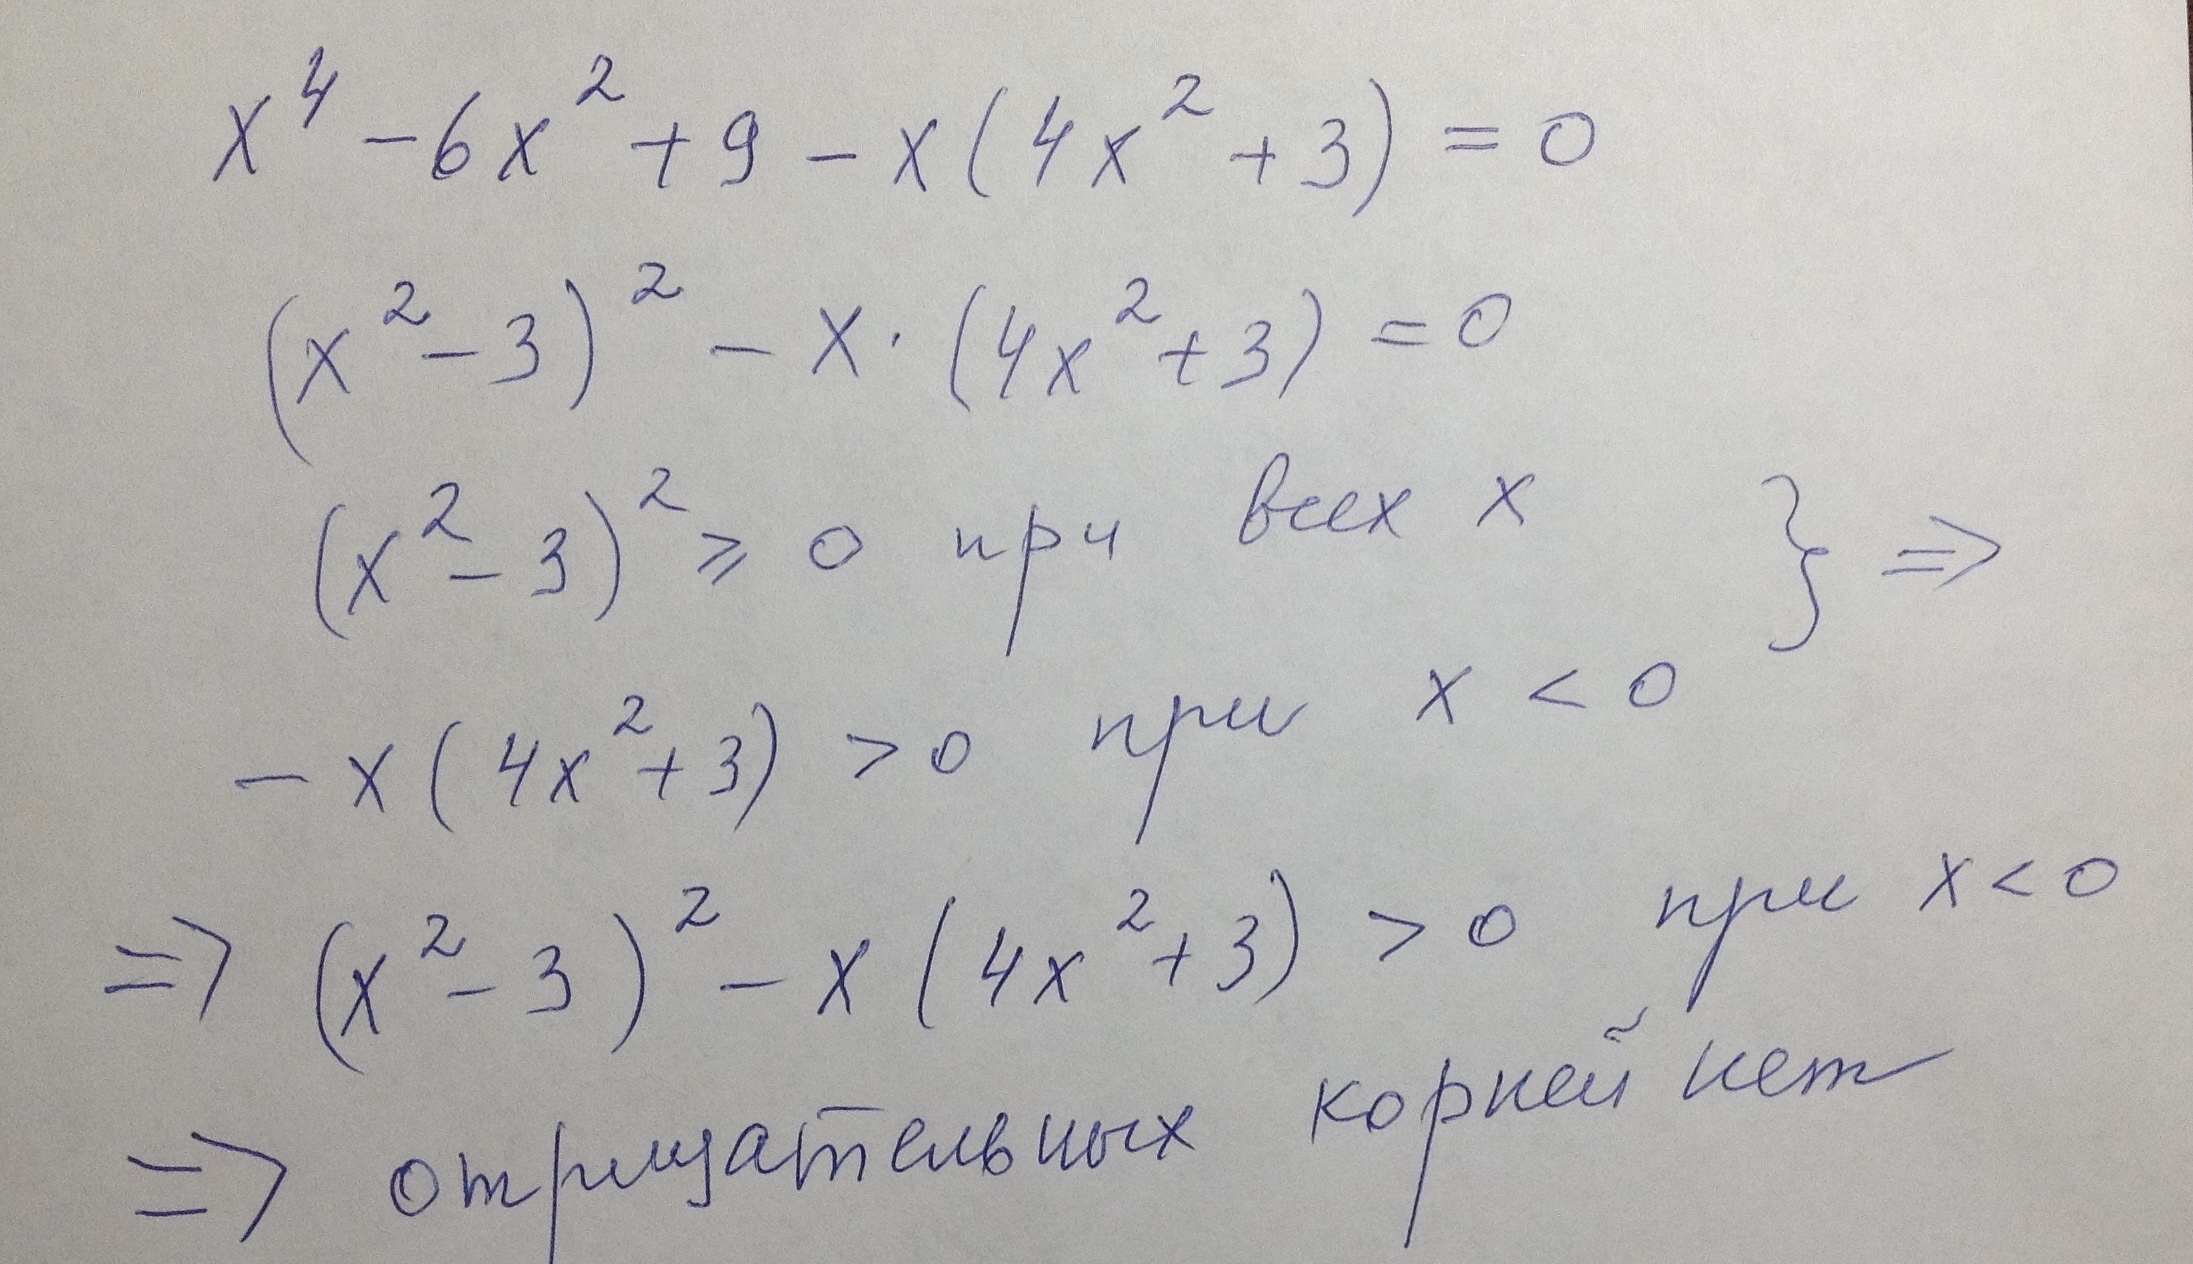 x⁴ - 6x² + 9 - x(4x² + 3) = 0
(x² - 3)² - x · (4x² + 3) = 0
(x² - 3)² ≥ 0 при всех x } ⇒
- x(4x² + 3) > 0 при x < 0
⇒ (x² - 3)² - x(4x² + 3) > 0 при x < 0
⇒ отрицательных корней нет